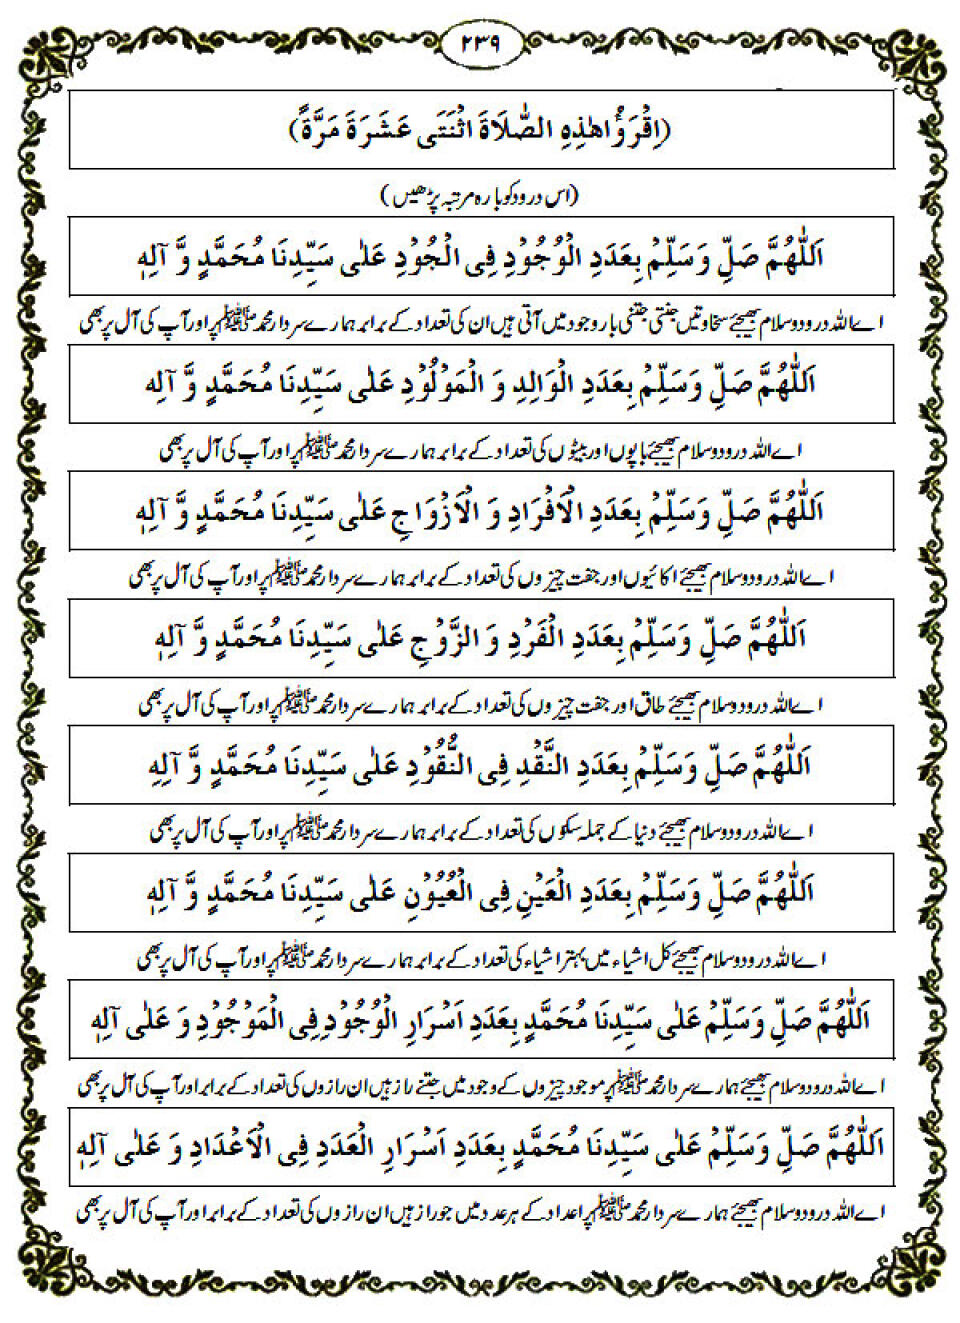 ٢٣٩
(اِقْرَؤُاهٰذِهِ الصَّلَاةَ اثْنَتَى عَشَرَةَ مَرَّةً)
(اس درود کو بارہ مرتبہ پڑھیں)
اَللّٰهُمَّ صَلِّ وَسَلِّمْ بِعَدَدِ الْوُجُوْدِ فِى الْجُوْدِ عَلٰى سَيِّدِنَا مُحَمَّدٍ وَّ آلِهٖ
اے اللہ درود و سلام بھیجئے سخاوتیں جتنی جتنی بار وجود میں آتی ہیں ان کی تعداد کے برابر ہمارے سردار محمد ﷺ پر اور آپ کی آل پر بھی
اَللّٰهُمَّ صَلِّ وَسَلِّمْ بِعَدَدِ الْوَالِدِ وَ الْمَوْلُوْدِ عَلٰى سَيِّدِنَا مُحَمَّدٍ وَّ آلِهٖ
اے اللہ درود و سلام بھیجئے باپوں اور بیٹوں کی تعداد کے برابر ہمارے سردار محمد ﷺ پر اور آپ کی آل پر بھی
اَللّٰهُمَّ صَلِّ وَسَلِّمْ بِعَدَدِ الْاَفْرَادِ وَ الْاَزْوَاجِ عَلٰى سَيِّدِنَا مُحَمَّدٍ وَّ آلِهٖ
اے اللہ درود و سلام بھیجئے اکائیوں اور جفت چیزوں کی تعداد کے برابر ہمارے سردار محمد ﷺ پر اور آپ کی آل پر بھی
اَللّٰهُمَّ صَلِّ وَسَلِّمْ بِعَدَدِ الْفَرْدِ وَ الزَّوْجِ عَلٰى سَيِّدِنَا مُحَمَّدٍ وَّ آلِهٖ
اے اللہ درود و سلام بھیجئے طاق اور جفت چیزوں کی تعداد کے برابر ہمارے سردار محمد ﷺ پر اور آپ کی آل پر بھی
اَللّٰهُمَّ صَلِّ وَسَلِّمْ بِعَدَدِ النَّقْدِ فِى النُّقُوْدِ عَلٰى سَيِّدِنَا مُحَمَّدٍ وَّ آلِهٖ
اے اللہ درود و سلام بھیجئے دنیا کے جملہ سکوں کی تعداد کے برابر ہمارے سردار محمد ﷺ پر اور آپ کی آل پر بھی
اَللّٰهُمَّ صَلِّ وَسَلِّمْ بِعَدَدِ الْعَيْنِ فِى الْعُيُوْنِ عَلٰى سَيِّدِنَا مُحَمَّدٍ وَّ آلِهٖ
اے اللہ درود و سلام بھیجئے کل اشیاء میں بہتر اشیاء کی تعداد کے برابر ہمارے سردار محمد ﷺ پر اور آپ کی آل پر بھی
اَللّٰهُمَّ صَلِّ وَسَلِّمْ عَلٰى سَيِّدِنَا مُحَمَّدٍ بِعَدَدِ اَسْرَارِ الْوُجُوْدِ فِى الْمَوْجُوْدِ وَ عَلٰى آلِهٖ
اے اللہ درود و سلام بھیجئے ہمارے سردار محمد ﷺ پر موجود چیزوں کے وجود میں جتنے راز ہیں ان رازوں کی تعداد کے برابر اور آپ کی آل پر بھی
اَللّٰهُمَّ صَلِّ وَسَلِّمْ عَلٰى سَيِّدِنَا مُحَمَّدٍ بِعَدَدِ اَسْرَارِ الْعَدَدِ فِى الْاَعْدَادِ وَ عَلٰى آلِهٖ
اے اللہ درود و سلام بھیجئے ہمارے سردار محمد ﷺ پر اعداد کے ہر عدد میں جو راز ہیں ان رازوں کی تعداد کے برابر اور آپ کی آل پر بھی